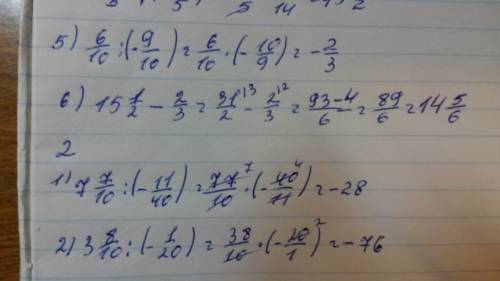 5) 6/10 : (-9/10) = 6/10 · (-10/9) = -2/3
6) 15 1/2 - 2/3 = 31/2 ¹³ - 2/3 ¹² = 93-4/6 = 89/6 = 14 5/6
2
1) 7 7/10 : (-11/40) = 77/10 ⁷ · (-40/11 ⁴) = -28
2) 3 8/10 : (-1/20) = 38/10 · (-20/1 ²) = -76